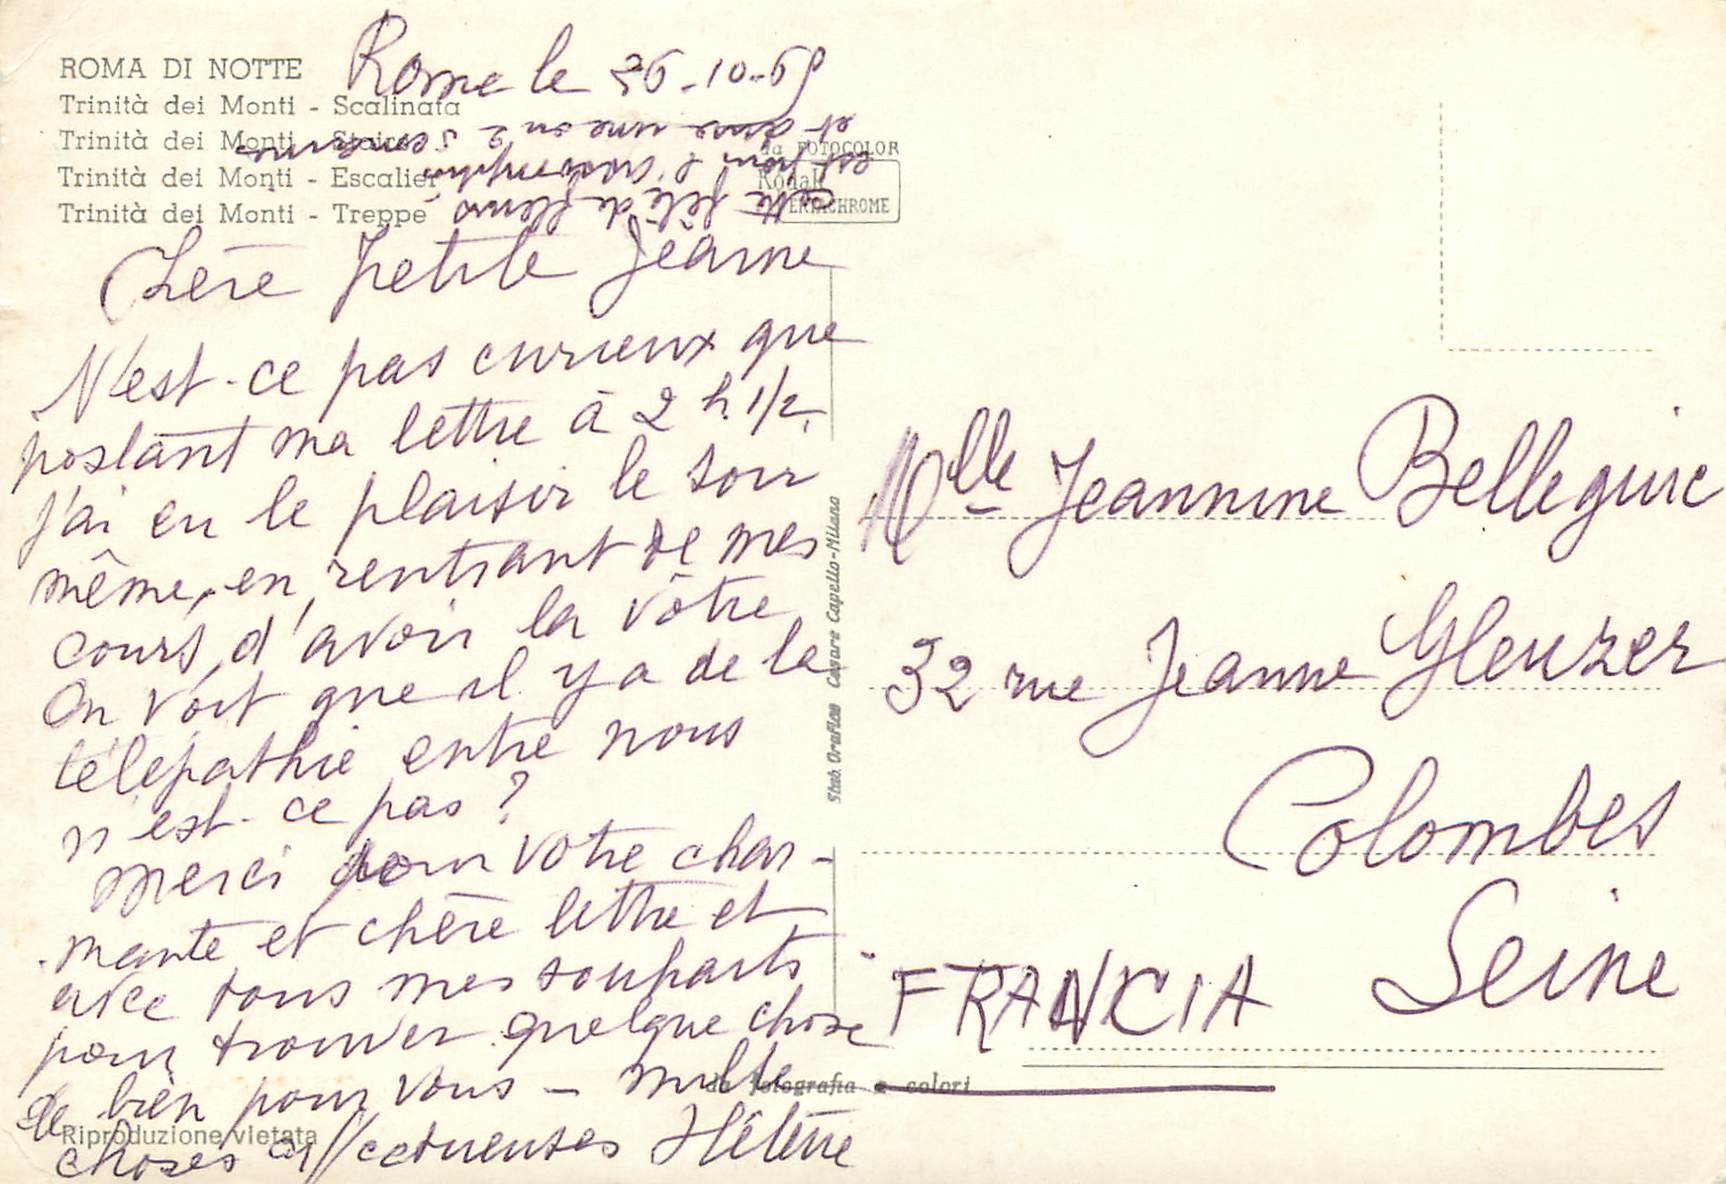 ROMA DI NOTTE
Trinità dei Monti - Scalinata
Trinità dei Monti - Stairs
Trinità dei Monti - Escalier
Trinità dei Monti - Treppe
Rome le 26-10-69
da FOTOCOLOR
Kodak
EKTACHROME
Cette fête de fleurs
est pour l'
et une ou 2 semaines
Chère petite Jeanne
N'est-ce pas curieux que
postant ma lettre à 2 h. 1/2,
j'ai eu le plaisir le soir
même, en rentrant de mes
cours, d'avoir la vôtre
On voit que il y a de la
télépathie entre nous
n'est-ce pas ?
Merci pour votre char-
mante et chère lettre et
avec tous mes souhaits
pour trouver quelque chose
de bien pour vous - mille
choses affectueuses Hélène
da fotografia a colori
Riproduzione vietata
Stab. Grafico Cesare Capello-Milano
Mlle Jeannine Belleguic
32 rue Jeanne Gleuzer
Colombes
Seine
FRANCIA